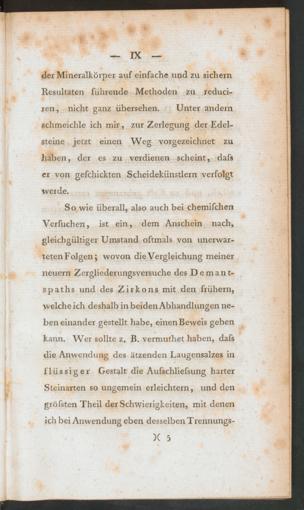 — IX —
der Mineralkörper auf einfache und zu sichern
Resultaten führende Methoden zu reduci-
ren, nicht ganz übersehen. Unter andern
schmeichle ich mir, zur Zerlegung der Edel-
steine jetzt einen Weg vorgezeichnet zu
haben, der es zu verdienen scheint, daſs
er von geſchickten Scheidekünſtlern verfolgt
werde.
So wie überall, also auch bei chemiſchen
Verſuchen, ist ein, dem Anschein nach,
gleichgültiger Umstand oftmals von unerwar-
teten Folgen; wovon die Vergleichung meiner
neuern Zergliederungsversuche des Demant-
spaths und des Zirkons mit den frühern,
welche ich deshalb in beiden Abhandlungen ne-
ben einander gestellt habe, einen Beweis geben
kann. Wer sollte z. B. vermuthet haben, daſs
die Anwendung des ätzenden Laugensalzes in
flüssiger Gestalt die Aufschlieſsung harter
Steinarten so ungemein erleichtern, und den
gröſsten Theil der Schwierigkeiten, mit denen
ich bei Anwendung eben desselben Trennungs-
)( 5